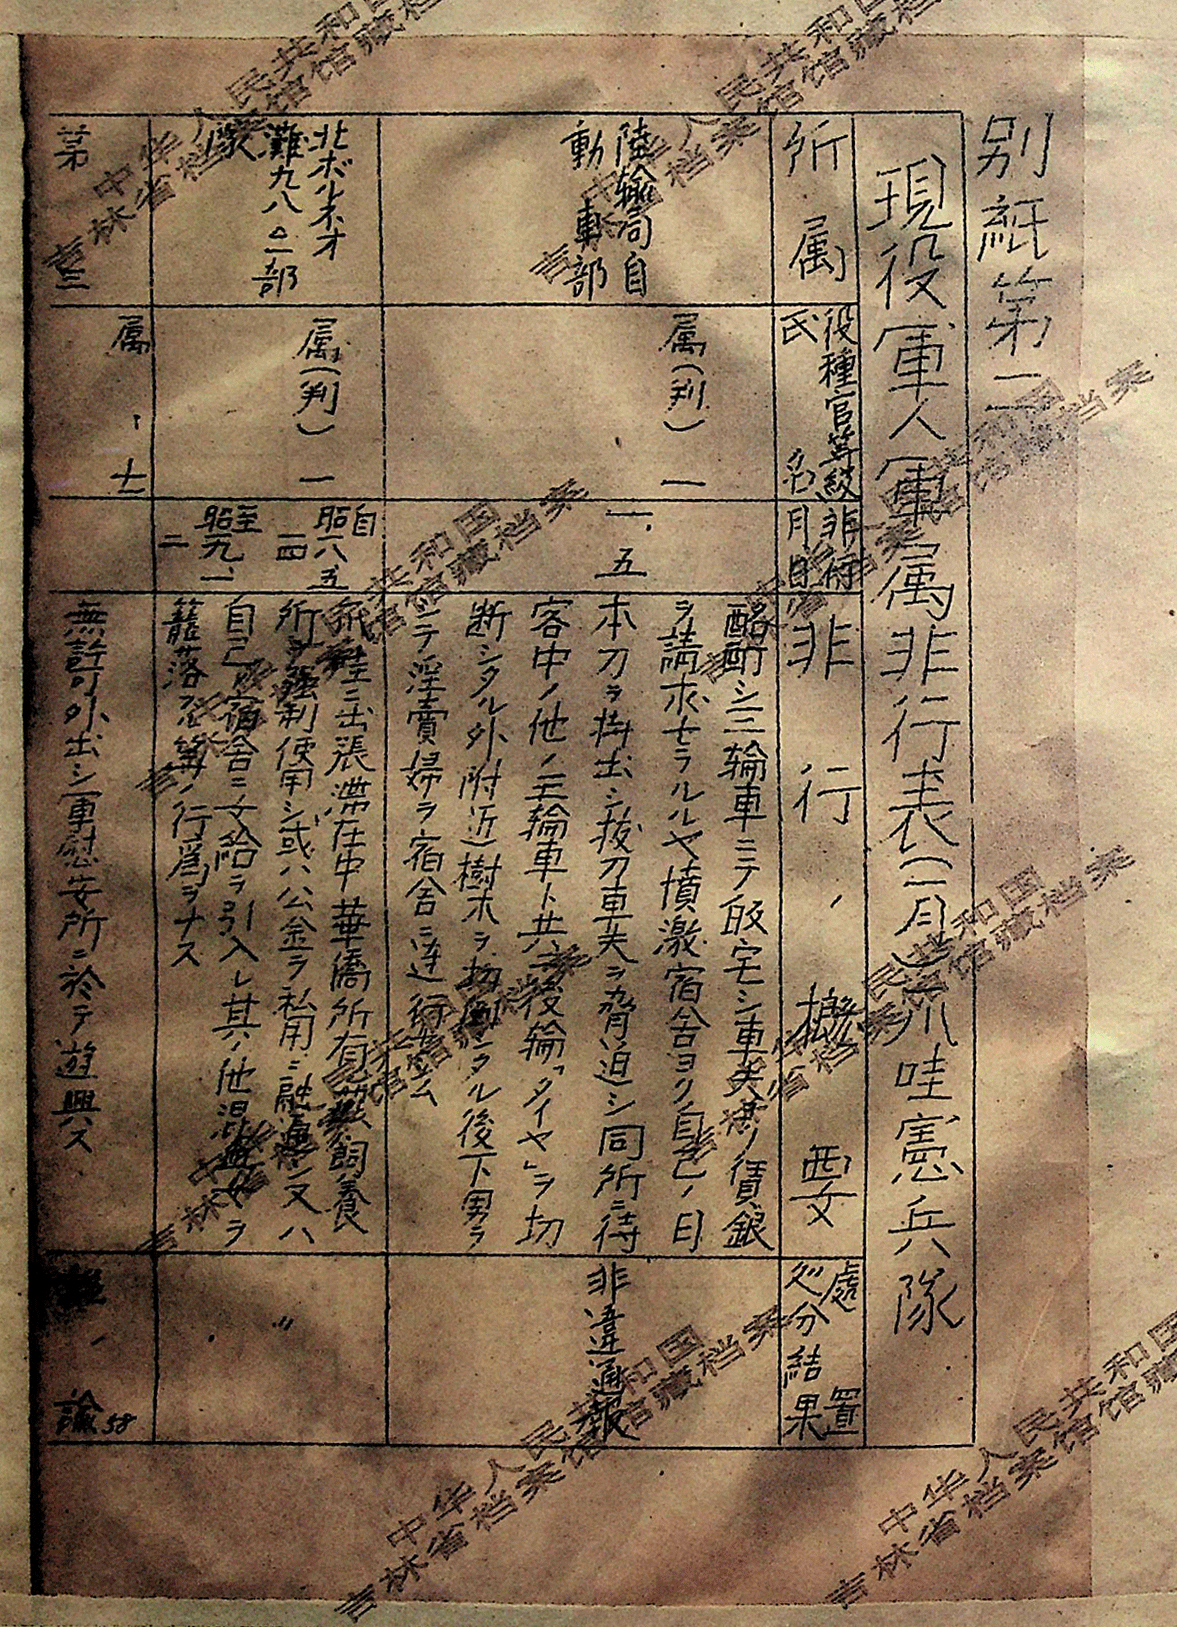 別紙第二
現役軍人軍属非行表(一月)爪哇憲兵隊
所属
役種官等級
氏名
非行
月日
非行ノ概要
處置
処分結果
陸輸局自
動車部
属(判)一
一、五
酩酊シ三輪車ニテ皈宅シ車夫ヨリ賃銀
ヲ請求セラルルヤ憤激宿舎ヨリ自己ノ日
本刀ヲ持出シ抜刀車夫ヲ脅迫シ同所ニ待
客中ノ他ノ三輪車ト共ニ後輪「タイヤ」ヲ切
断シタル外附近ノ樹木ヲ切倒シタル後下男ヲ
シテ淫賣婦ヲ宿舎ニ連行セシム
非違通報
北ボルネオ
灘九八〇一部
隊
属(判)一
自
昭一八、五
一四
至
昭一九、一
二
爪哇ニ出張滞在中華僑所有
所ヲ強制使用シ或ハ公金ヲ私用ニ融通シ又ハ
自己ノ宿舎ニ女給ヲ引入レ其ノ他混血女ヲ
籠落スル等ノ行為ヲナス
〃
第三
属、士
無許可外出シ軍慰安所ニ於テ遊興ス
諭
58
中华人民共和国
吉林省档案馆馆藏档案